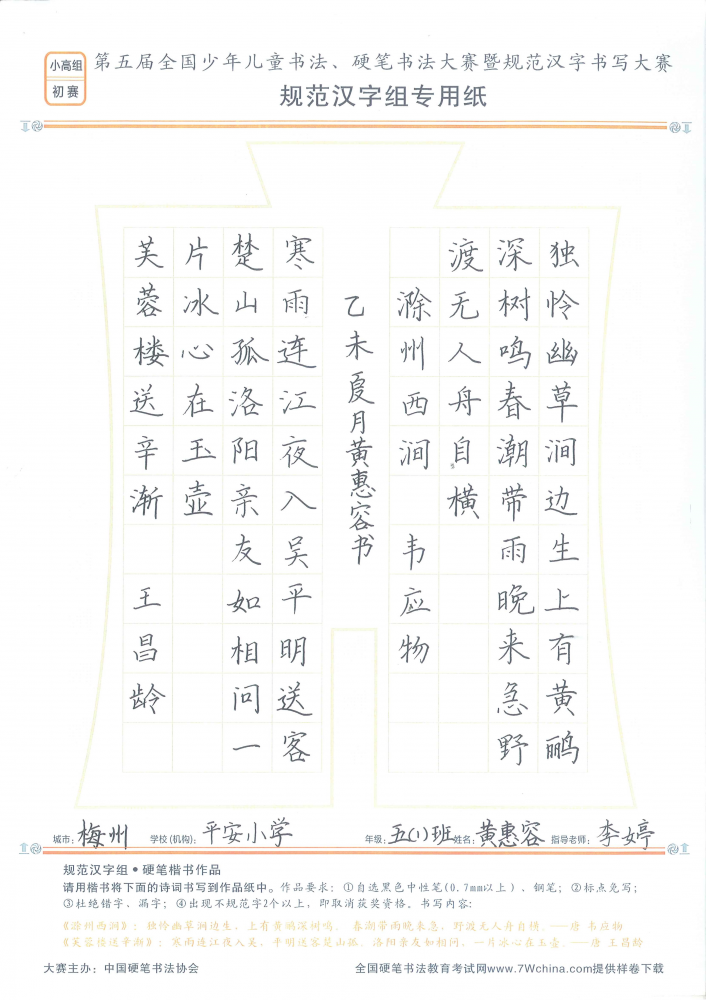 小高组
初赛
第五届全国少年儿童书法、硬笔书法大赛暨规范汉字书写大赛
规范汉字组专用纸
独怜幽草涧边生上有黄鹂
深树鸣春潮带雨晚来急野
渡无人舟自横
滁州西涧 韦应物
乙未夏月黄惠容书
寒雨连江夜入吴平明送客
楚山孤洛阳亲友如相问一
片冰心在玉壶
芙蓉楼送辛渐 王昌龄
城市：梅州 学校(机构)：平安小学 年级：五(1)班 姓名：黄惠容 指导老师：李婷
规范汉字组•硬笔楷书作品
请用楷书将下面的诗词书写到作品纸中。作品要求：①自选黑色中性笔(0.7mm以上)、钢笔；②标点免写；
③杜绝错字、漏字；④出现不规范字2个以上，即取消获奖资格。书写内容：
《滁州西涧》：独怜幽草涧边生，上有黄鹂深树鸣。春潮带雨晚来急，野渡无人舟自横。——唐 韦应物
《芙蓉楼送辛渐》：寒雨连江夜入吴，平明送客楚山孤。洛阳亲友如相问，一片冰心在玉壶。——唐 王昌龄
大赛主办：中国硬笔书法协会 全国硬笔书法教育考试网www.7Wchina.com提供样卷下载